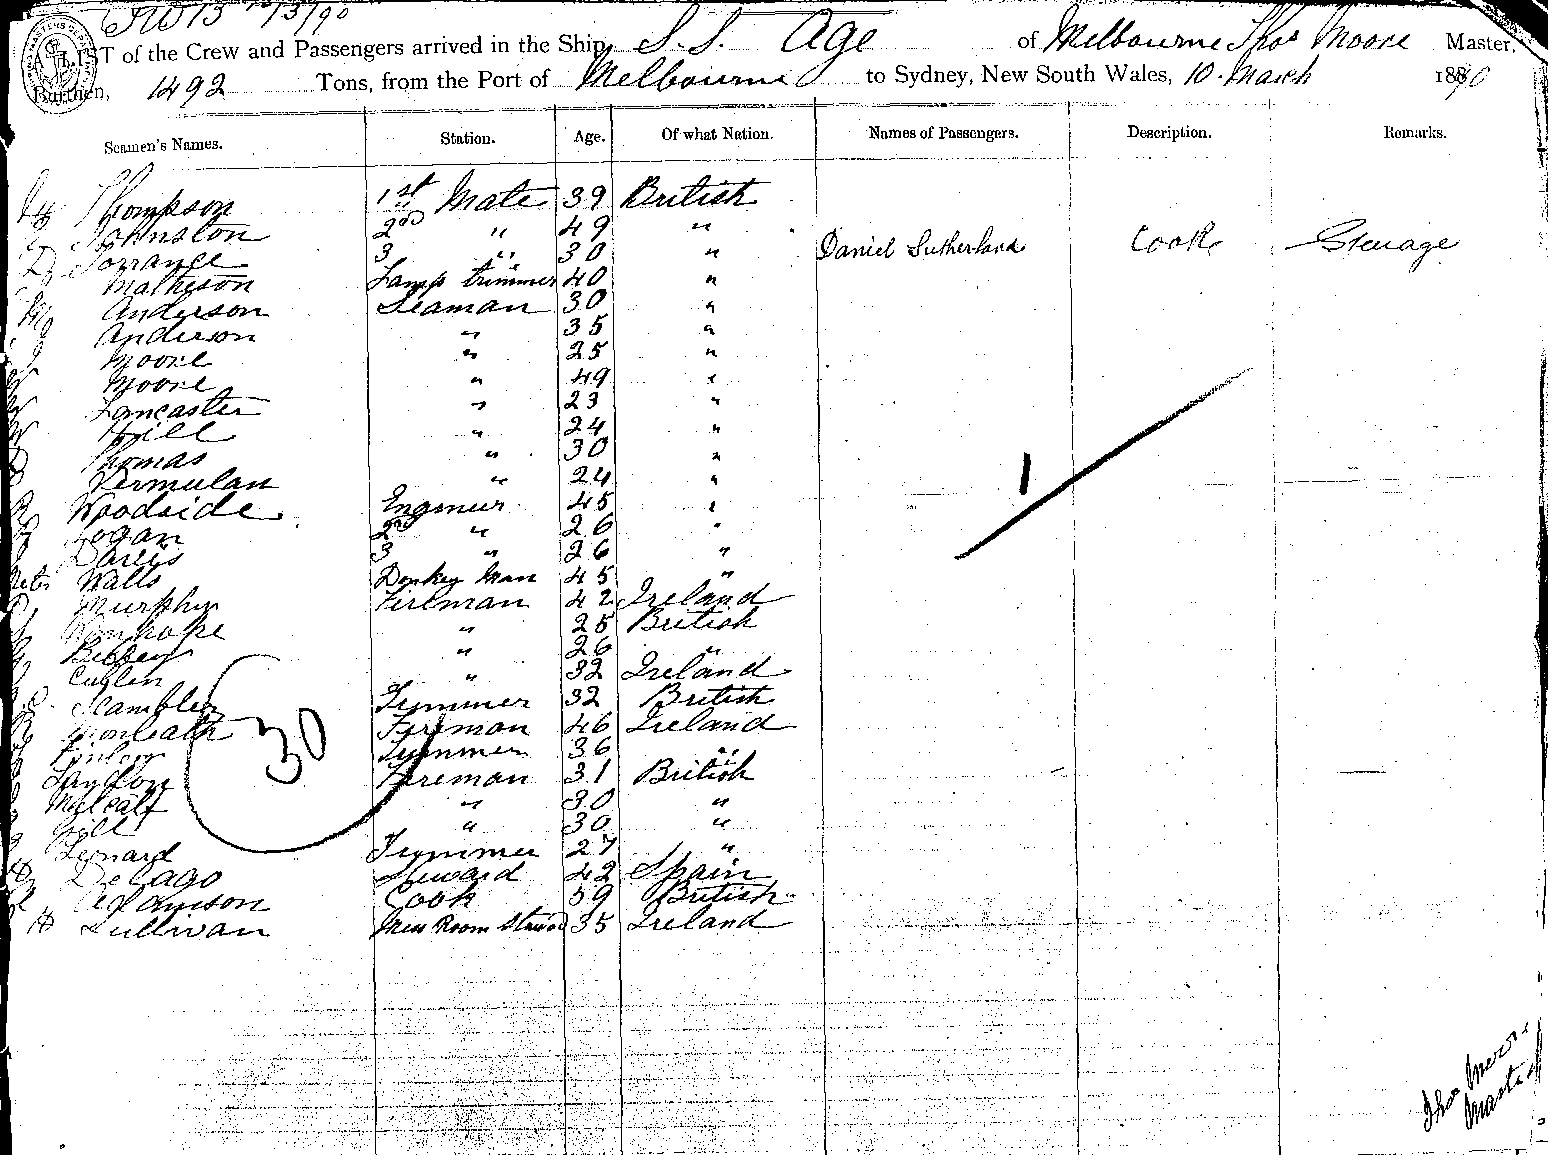 13/90
A LIST of the Crew and Passengers arrived in the Ship, S.S. Age of Melbourne Thos Moore Master,
Burthen, 1492 Tons, from the Port of Melbourne to Sydney, New South Wales, 10 March 1890
Seamen's Names. Station. Age. Of what Nation. Names of Passengers. Description. Remarks.
Thompson 1st Mate 39 British
Johnston 2nd " 49 "
Torrance 3 " 30 " Daniel Sutherland Cook Steerage
Matheson Lamp trimmer 40 "
Anderson Seaman 30 "
Anderson " 35 "
Moore " 25 "
Moore " 49 "
Lancaster " 23 "
Hill " 24 "
Thomas " 30 "
Vermulan " 24 "
Woodside Engineer 45 "
Logan 2nd " 26 "
Davies 3 " 26 "
Peter Walls Donkey Man 45 "
Murphy Fireman 42 Ireland
" 25 British
" 26 "
Cullen " 32 Ireland
Scambler Trimmer 32 British
Fireman 46 Ireland
Finlay Trimmer 36 "
Fireman 31 British
Metcalf " 30 "
Gill " 30 "
Lenard Trimmer 27 "
Delago Steward 42 Spain
Cook 59 British
Sullivan Mess Room Steward 35 Ireland
1
30
Thos Moore
Master